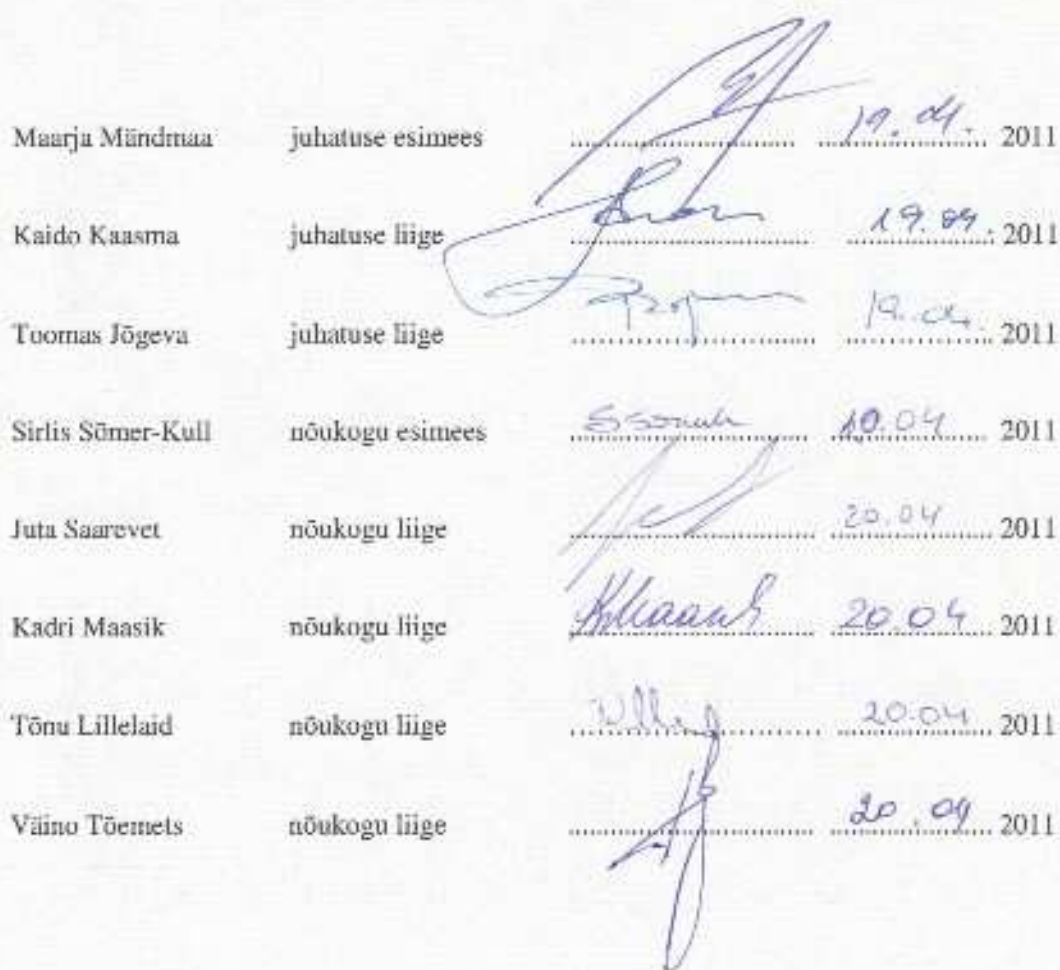 Maarja Mändmaa juhatuse esimees 19.04. 2011
Kaido Kaasma juhatuse liige 19.04. 2011
Toomas Jõgeva juhatuse liige 19.04. 2011
Sirlis Sõmer-Kull nõukogu esimees 2011
Juta Saarevet nõukogu liige 20.04 2011
Kadri Maasik nõukogu liige KMaasik 20.04 2011
Tõnu Lillelaid nõukogu liige 20.04 2011
Väino Tõemets nõukogu liige 20.04 2011